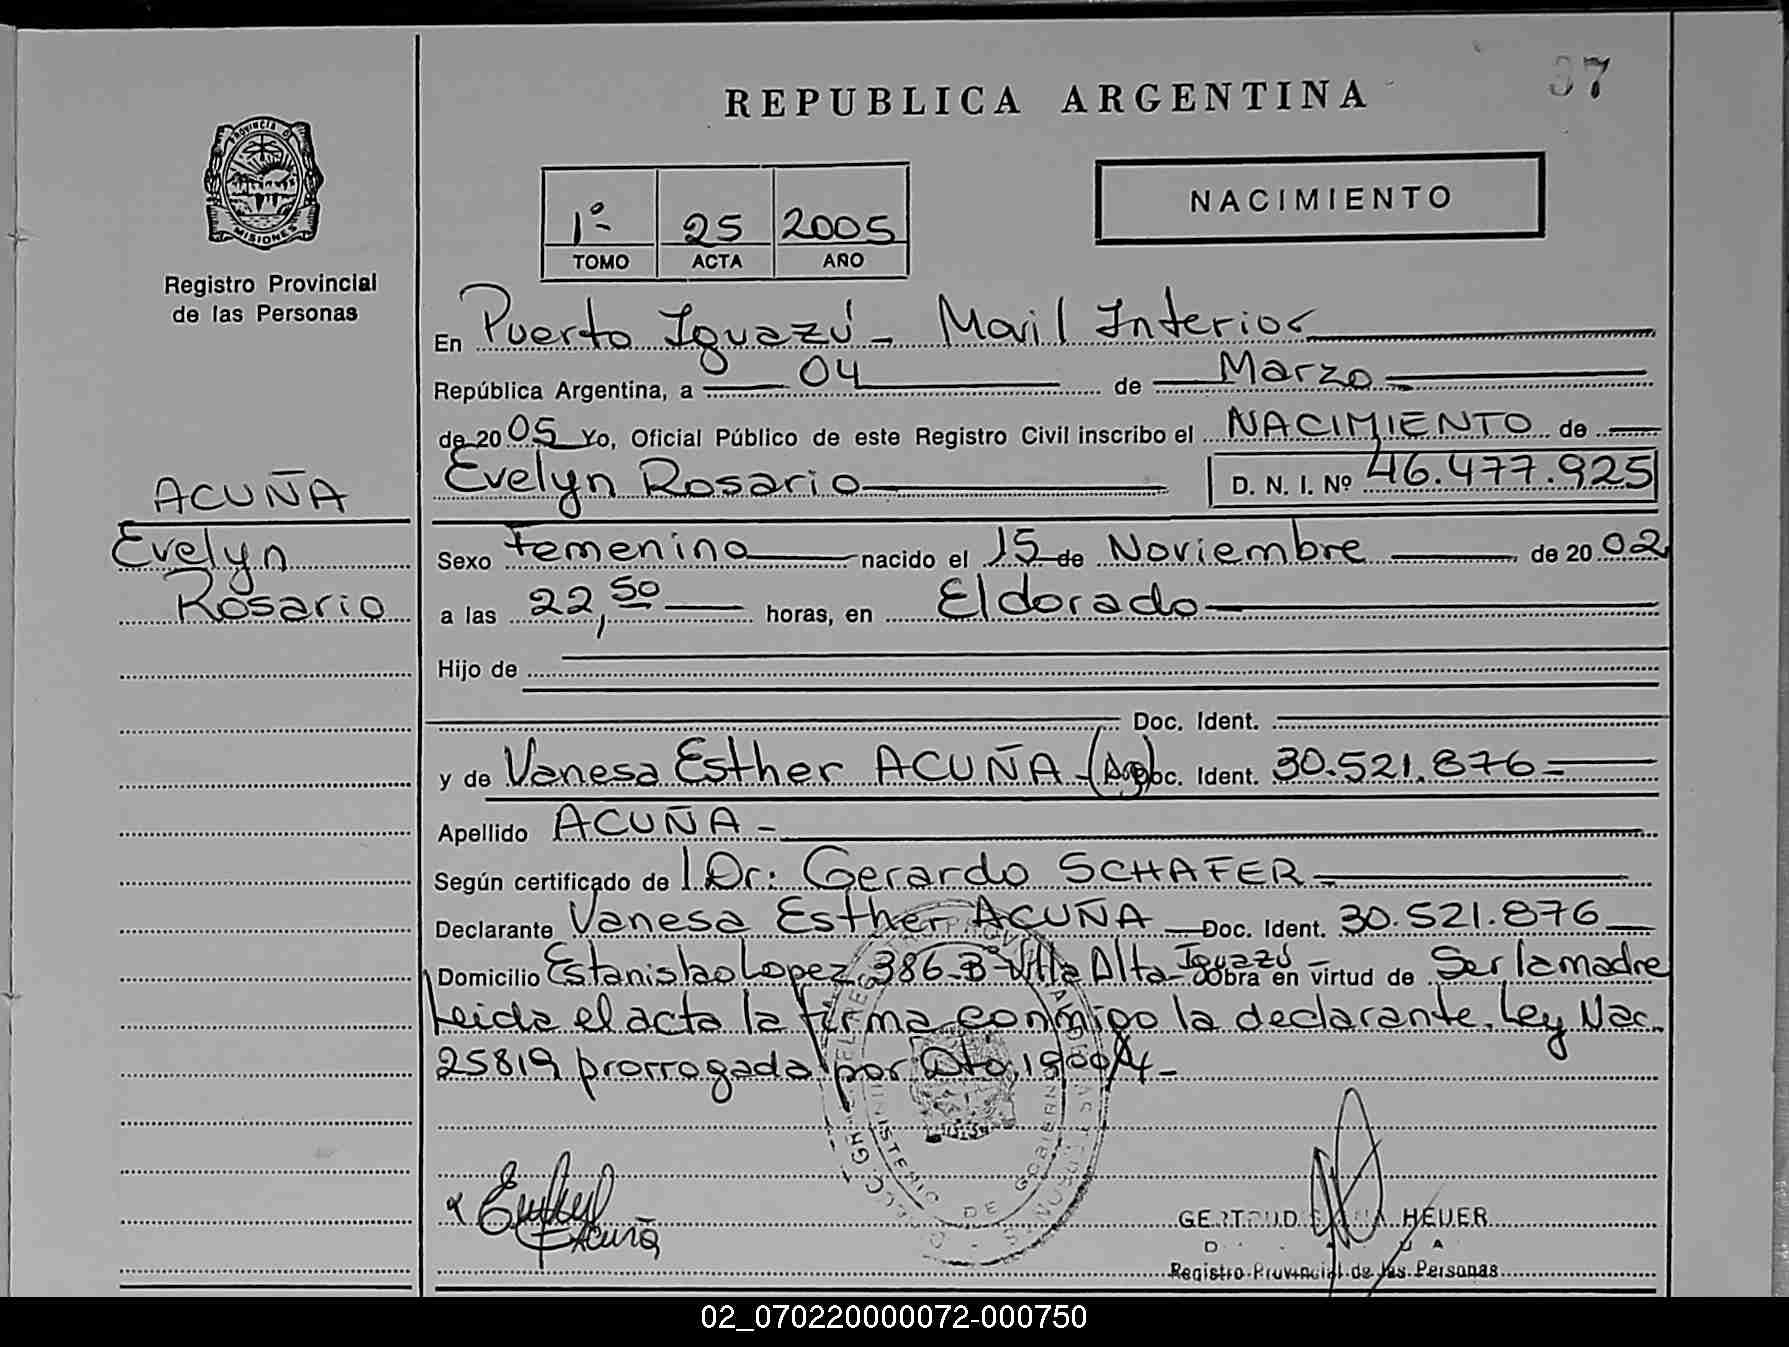 37
REPUBLICA ARGENTINA
PROVINCIA DE
MISIONES
NACIMIENTO
1º 25 2005
TOMO ACTA AÑO
Registro Provincial
de las Personas
En Puerto Iguazú - Movil Interior
República Argentina, a 04 de Marzo
de 2005 Yo, Oficial Público de este Registro Civil inscribo el NACIMIENTO de
Evelyn Rosario D. N. I. Nº 46.477.925
ACUÑA
Evelyn
Rosario
Sexo Femenino nacido el 15 de Noviembre de 2002
a las 22,50 horas, en Eldorado
Hijo de
Doc. Ident.
y de Vanesa Esther ACUÑA - (Arg) Doc. Ident. 30.521.876
Apellido ACUÑA -
Según certificado de Dr: Gerardo SCHAFER
Declarante Vanesa Esther ACUÑA Doc. Ident. 30.521.876
Domicilio Estanislao Lopez 386 Bº Villa Alta - Iguazú Obra en virtud de Ser la madre
Leida el acta la firma conmigo la declarante. Ley Nac.
25819 prorrogada por Dto 1900/4 -
MINISTERIO DE GOBIERNO
Acuña
HEUER
Registro Provincial de las Personas
02_070220000072-000750